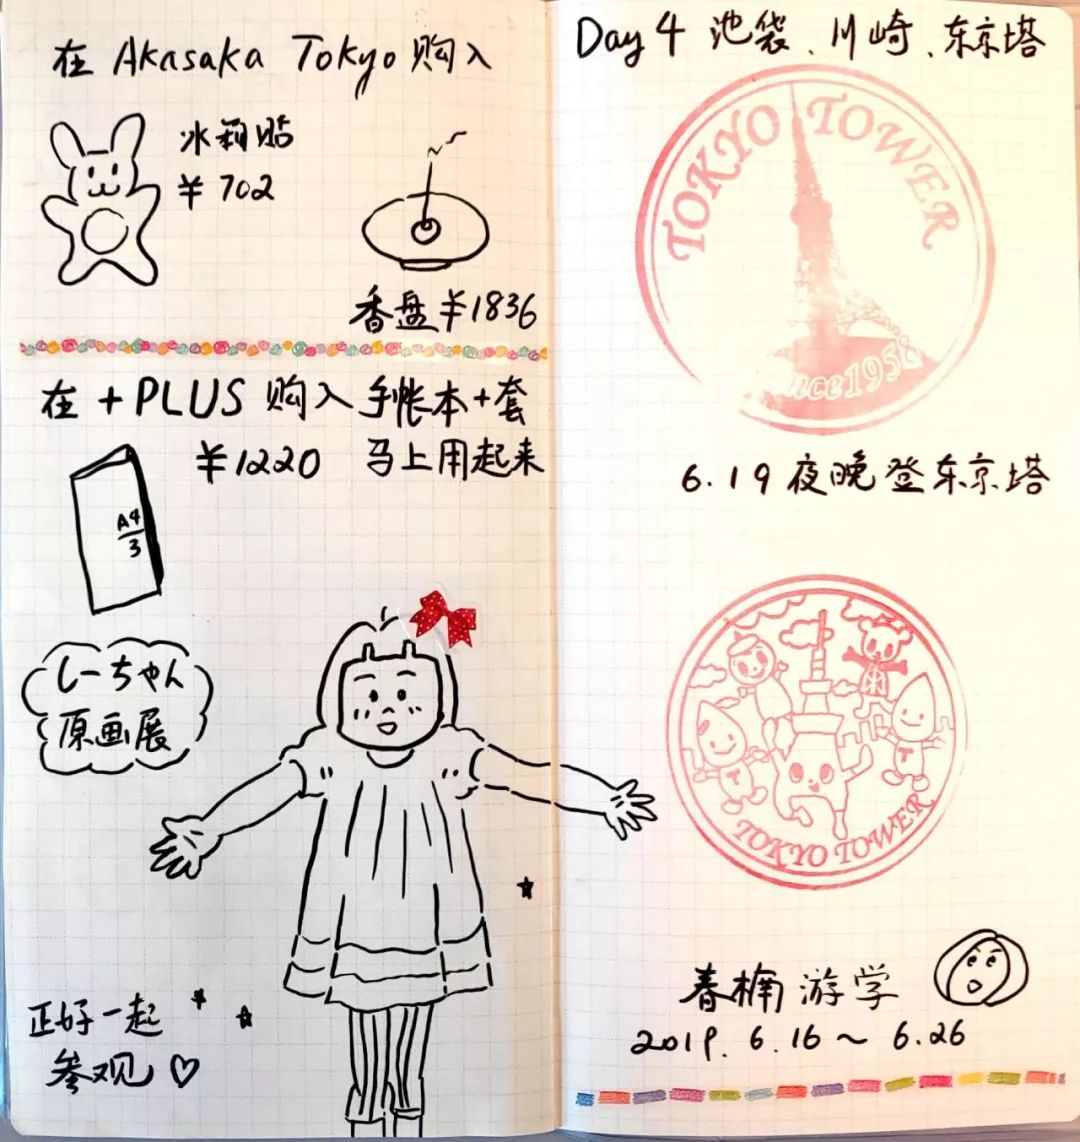 在 Akasaka Tokyo 购入
冰箱贴
¥702
香盘¥1836
在 +PLUS 购入手帐本+套
¥1220 马上用起来
A4
3
しーちゃん
原画展
正好一起
参观♡
Day 4 池袋、川崎、东京塔
TOKYO TOWER
since1958
6.19夜晚登东京塔
T
T
TOKYO TOWER
春楠游学
2019.6.16~6.26